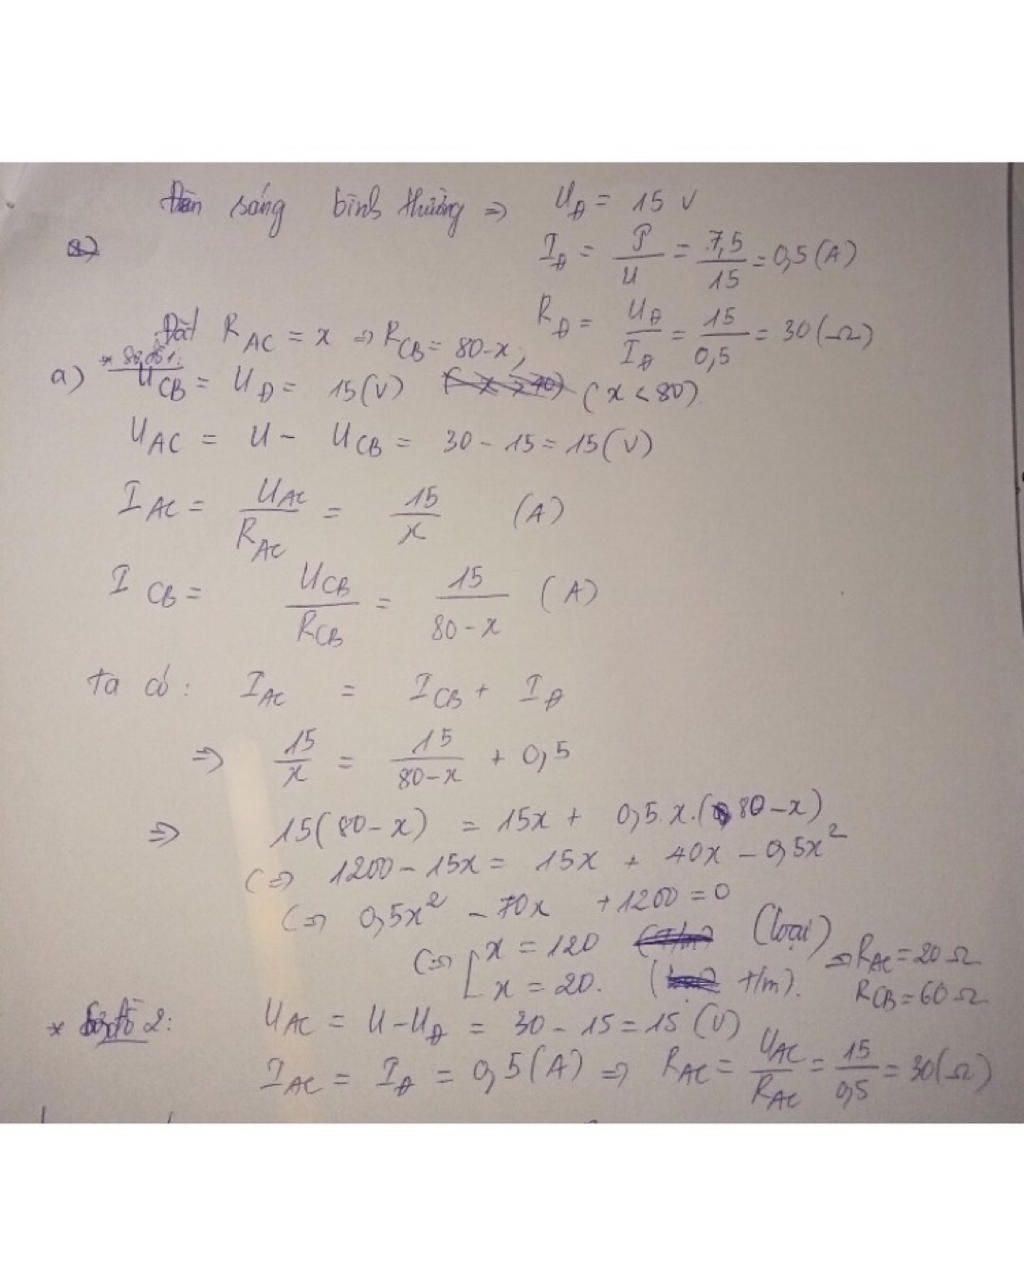 Đèn sáng bình thường => U_Đ = 15 V
I_Đ = P/U = 7,5/15 = 0,5 (A)
R_Đ = U_Đ/I_Đ = 15/0,5 = 30 (Ω)
Đặt R_AC = x => R_CB = 80-x;
* Sơ đồ 1:
a) U_CB = U_Đ = 15 (V) (x < 80)
U_AC = U - U_CB = 30 - 15 = 15 (V)
I_AC = U_AC/R_AC = 15/x (A)
I_CB = U_CB/R_CB = 15/(80-x) (A)
ta có: I_AC = I_CB + I_Đ
=> 15/x = 15/(80-x) + 0,5
=> 15(80-x) = 15x + 0,5.x.(80-x)
<=> 1200 - 15x = 15x + 40x - 0,5x²
<=> 0,5x² - 70x + 1200 = 0
<=> [ x = 120 (loại)
x = 20. (t/m). => R_AC = 20 Ω
R_CB = 60 Ω
* Sơ đồ 2: U_AC = U - U_Đ = 30 - 15 = 15 (V)
I_AC = I_Đ = 0,5 (A) => R_AC = U_AC/R_AC = 15/0,5 = 30 (Ω)